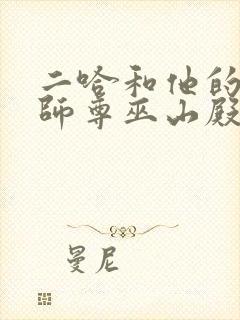 二哈和他的
师尊巫山殿
曼尼